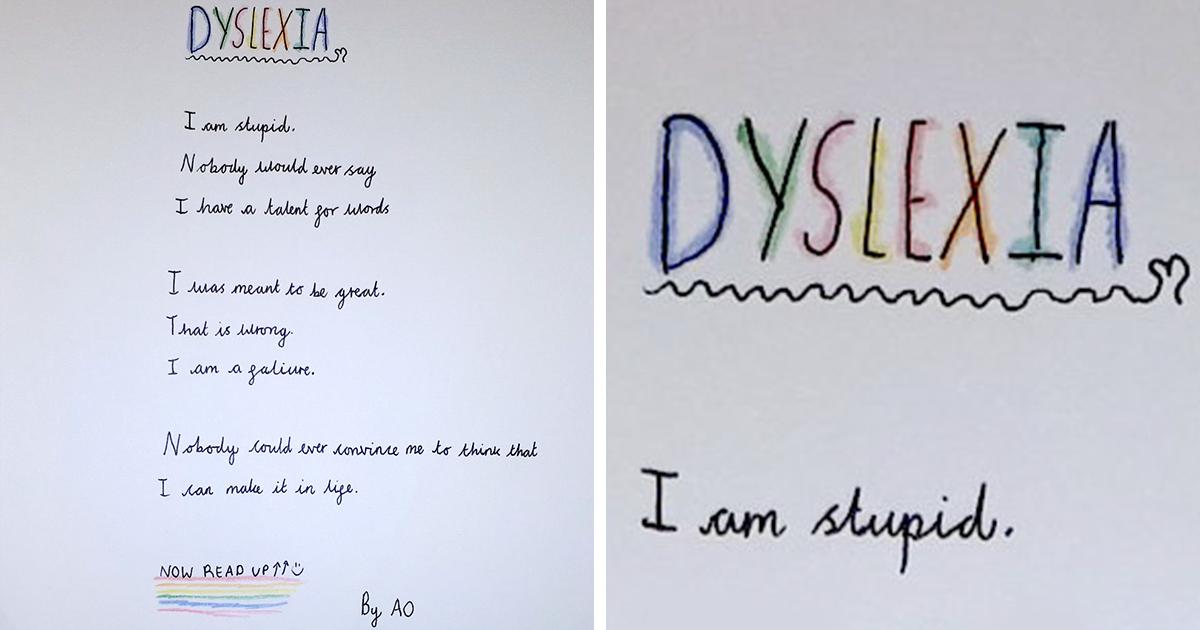 DYSLEXIA
I am stupid.
Nobody would ever say
I have a talent for words
I was meant to be great.
That is wrong.
I am a faliure.
Nobody could ever convince me to think that
I can make it in life.
NOW READ UP↑↑☺
By AO
DYSLEXIA
I am stupid.